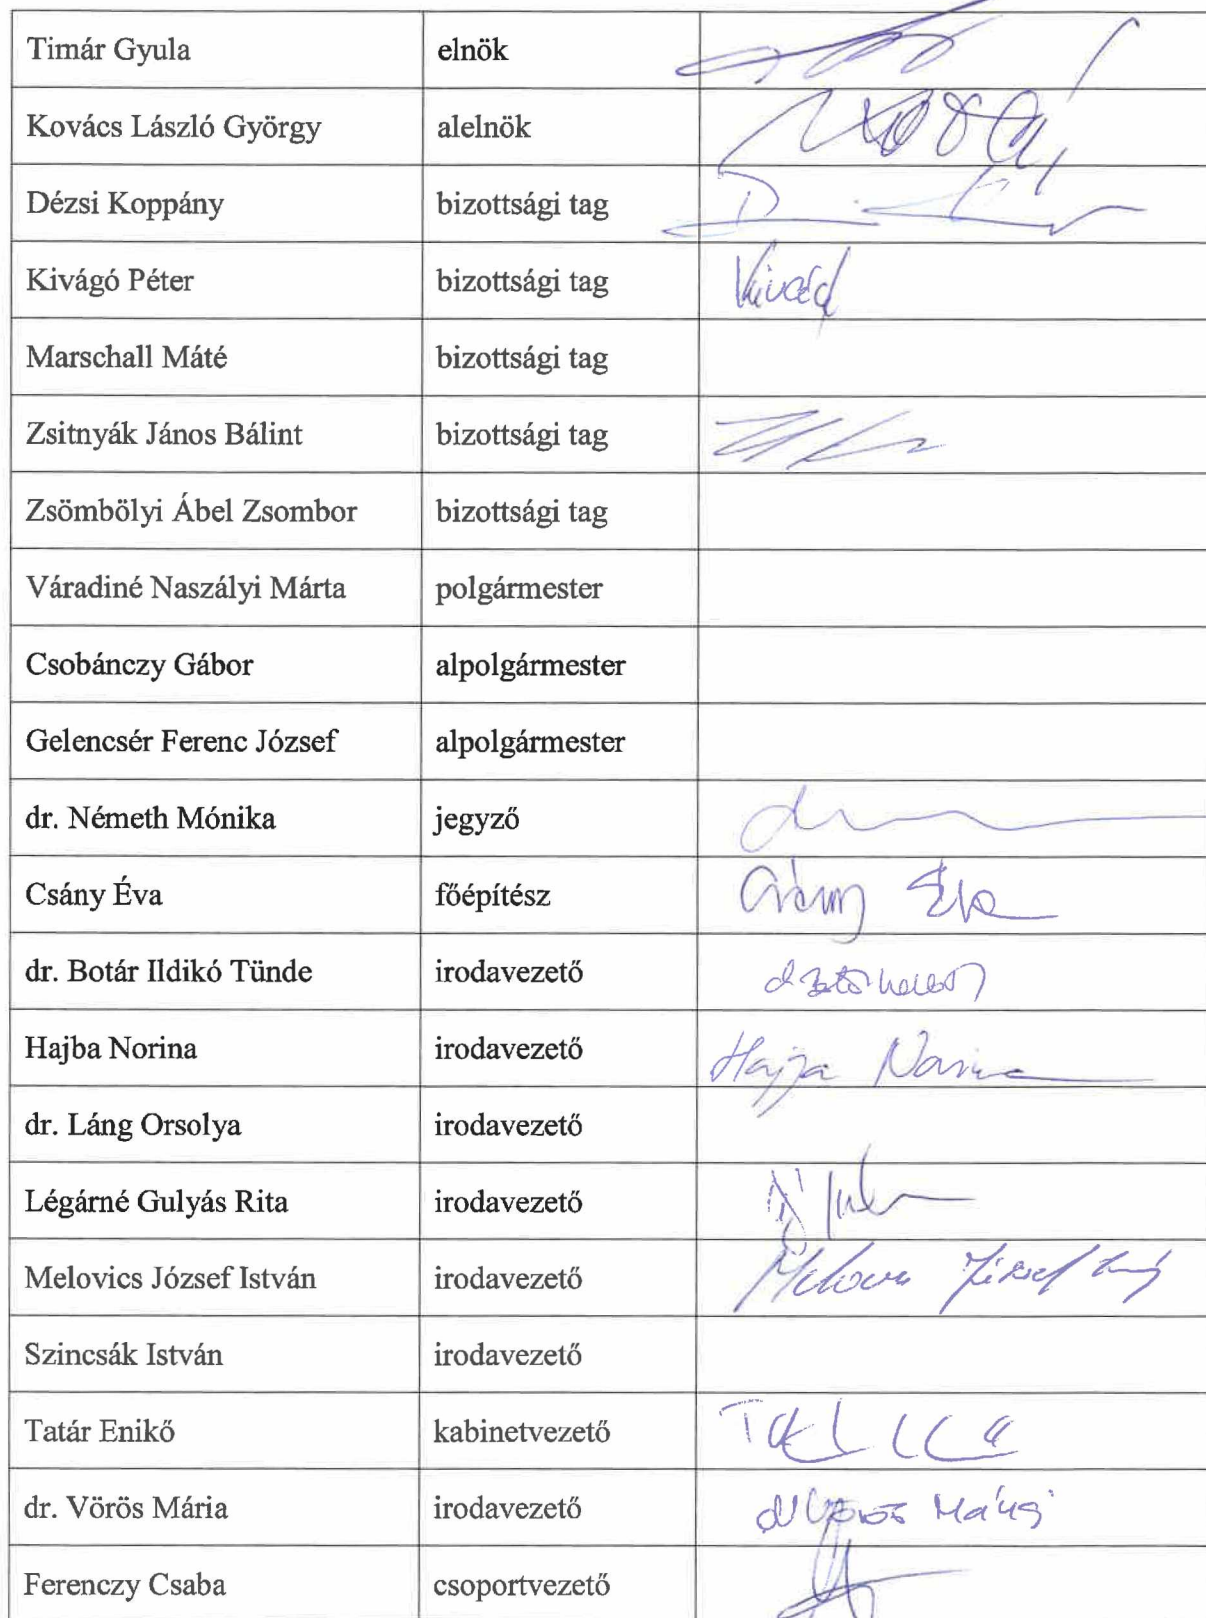 Timár Gyula elnök
Kovács László György alelnök
Dézsi Koppány bizottsági tag
Kivágó Péter bizottsági tag
Marschall Máté bizottsági tag
Zsitnyák János Bálint bizottsági tag
Zsömbölyi Ábel Zsombor bizottsági tag
Váradiné Naszályi Márta polgármester
Csobánczy Gábor alpolgármester
Gelencsér Ferenc József alpolgármester
dr. Németh Mónika jegyző
Csány Éva főépítész Csány Éva
dr. Botár Ildikó Tünde irodavezető
Hajba Norina irodavezető Hajba Norina
dr. Láng Orsolya irodavezető
Légárné Gulyás Rita irodavezető
Melovics József István irodavezető
Szincsák István irodavezető
Tatár Enikő kabinetvezető
dr. Vörös Mária irodavezető dr Vörös Mária
Ferenczy Csaba csoportvezető